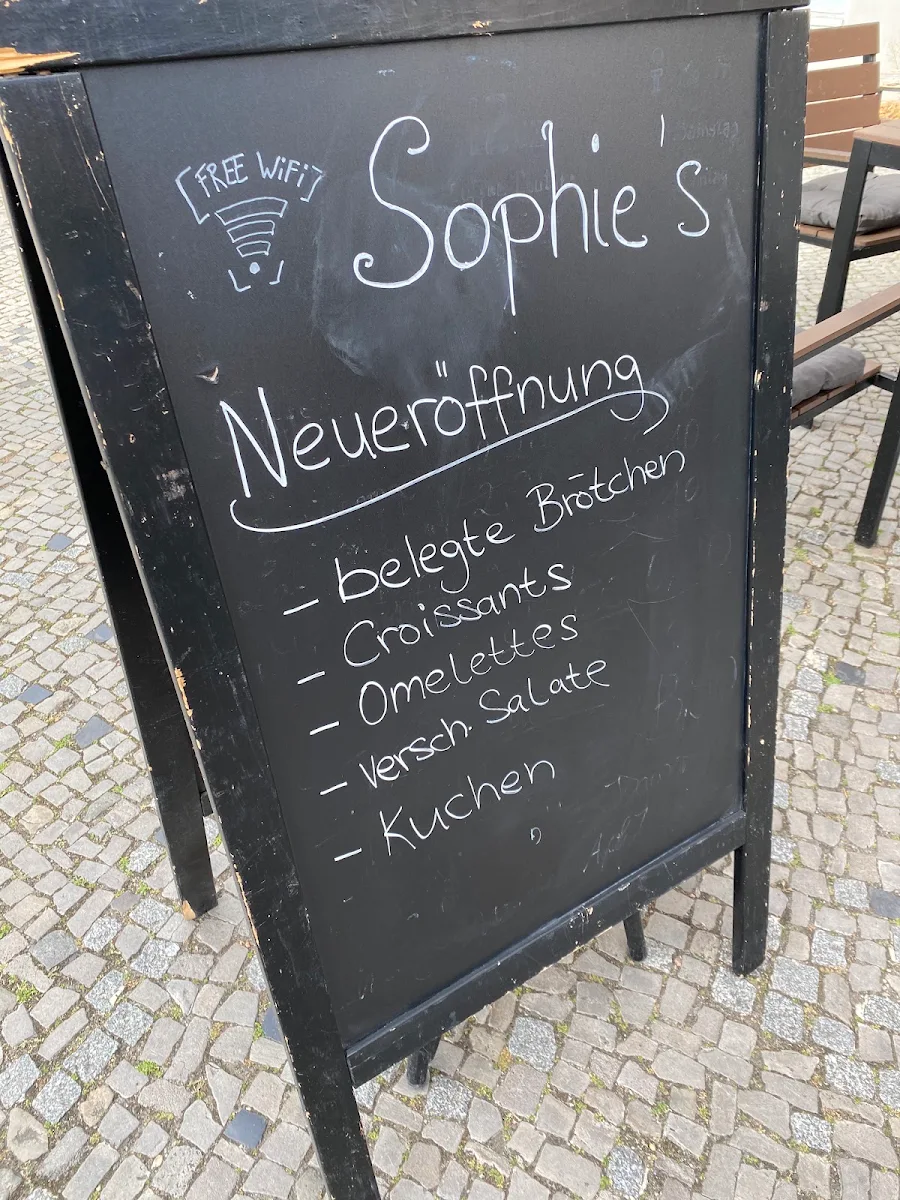 [FREE WiFi]
Sophie's
Neueröffnung
- belegte Brötchen
- Croissants
- Omelettes
- versch. Salate
- Kuchen